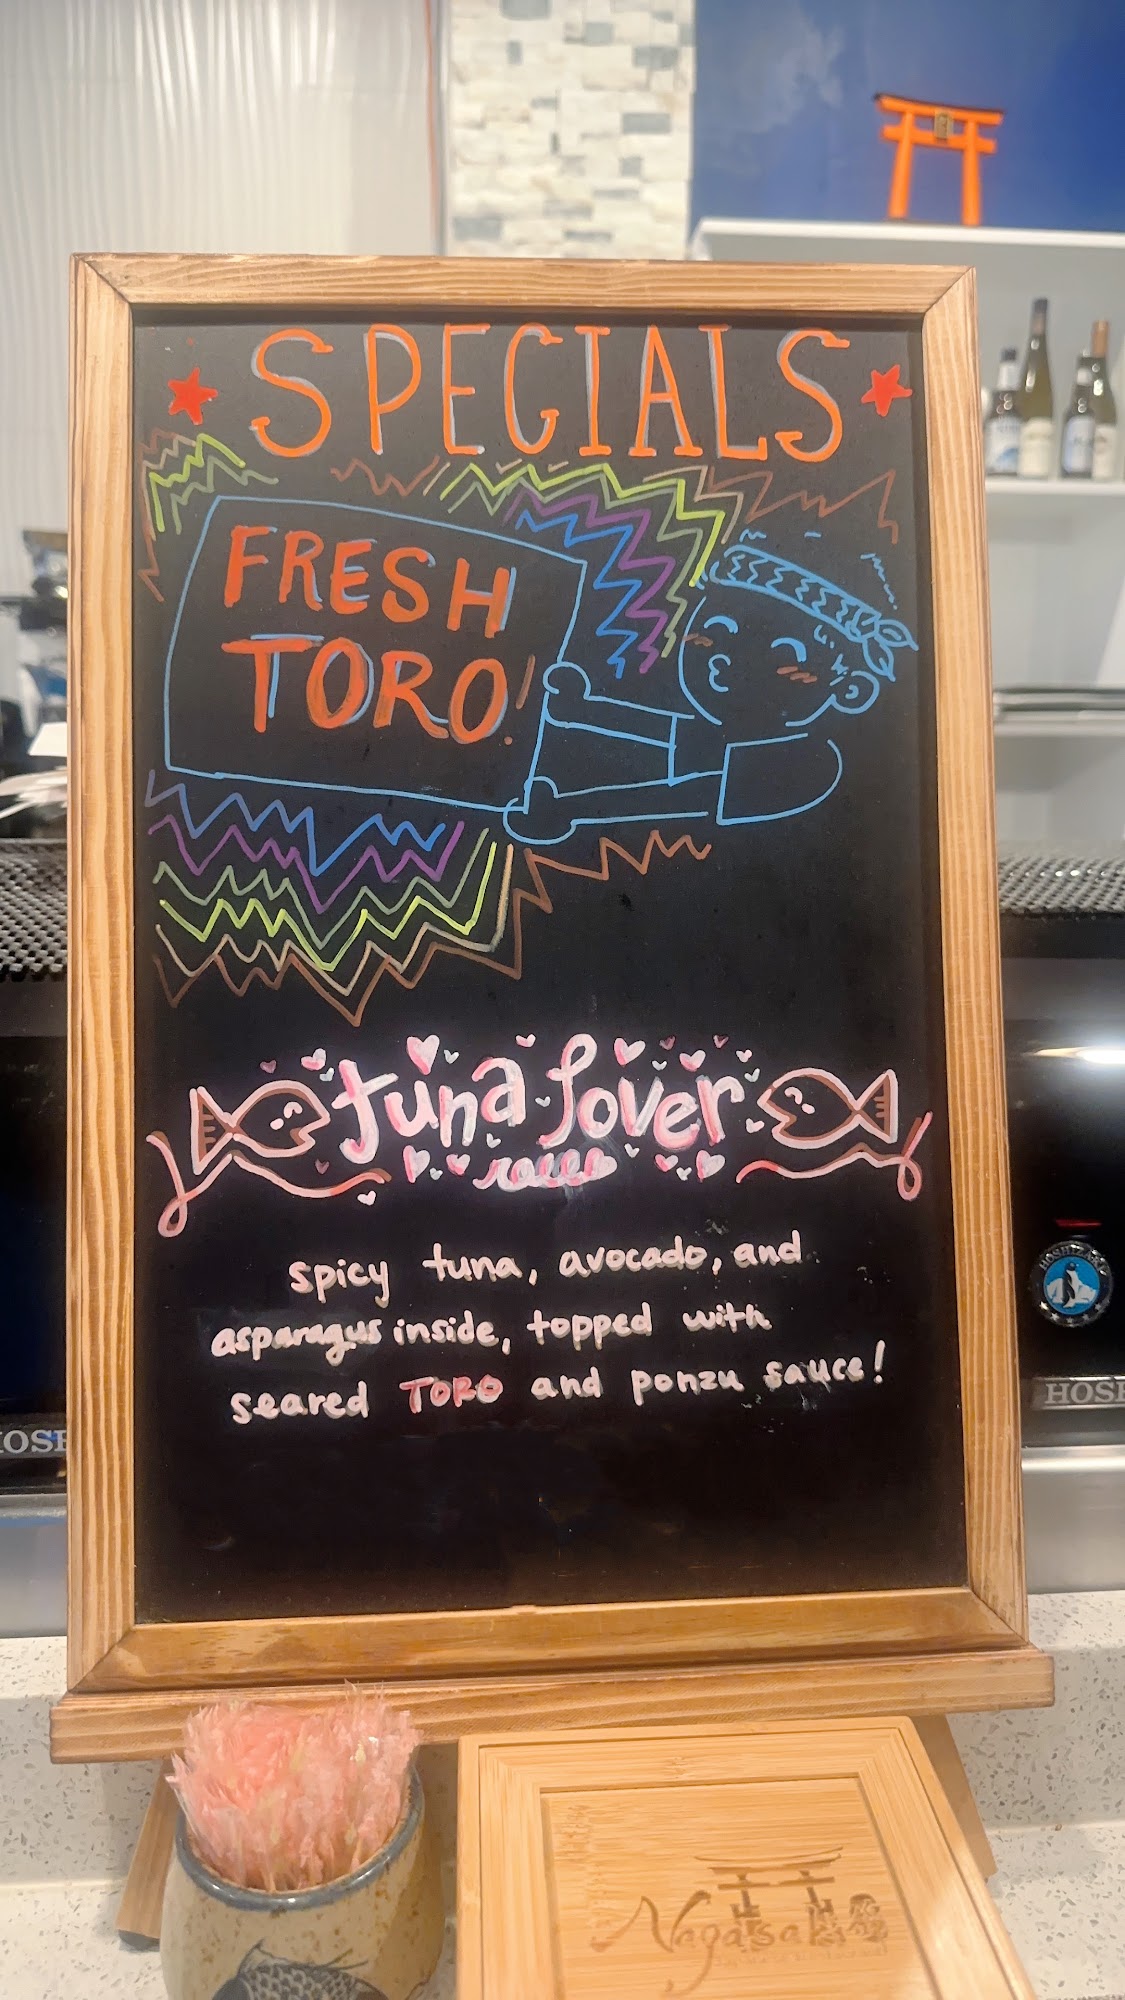 SPECIALS
FRESH
TORO!
tuna lover
spicy tuna, avocado, and
asparagus inside, topped with
seared TORO and ponzu sauce!
HOSHIZAKI
HOSH
HOSH
Nagasaki